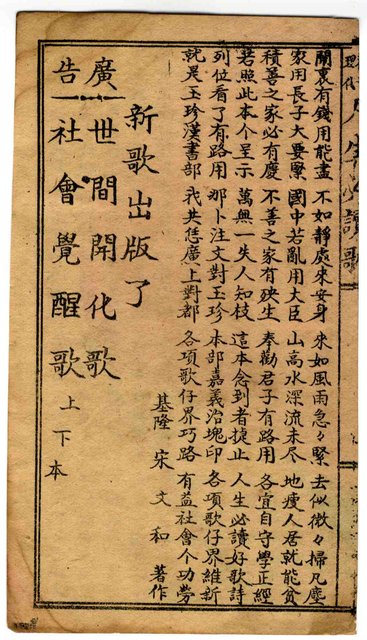 現代人生必讀歌
鬧裏有錢用能盡 不如靜處來安身 來如風雨急々緊 去似微々掃凡塵
家用長子大要緊 國中若亂用大臣 山高水深流未尽 地瘦人居就能貧
積善之家必有慶 不善之家有殃生 奉勸君子有路用 各宜自守學正經
若照此本个呈示 萬無一失人知枝 這本念到者捷止 人生必讀好歌詩
列位看了有路用 那卜注文對玉珍 本部嘉義治塊印 各項歌仔界維新
就是玉珍漢書部 我共恁廣上對都 各項歌仔界巧路 有益社會个功勞
基隆 宋文和 著作
新歌出版了
廣告
世間開化歌
社會覺醒歌
上下本